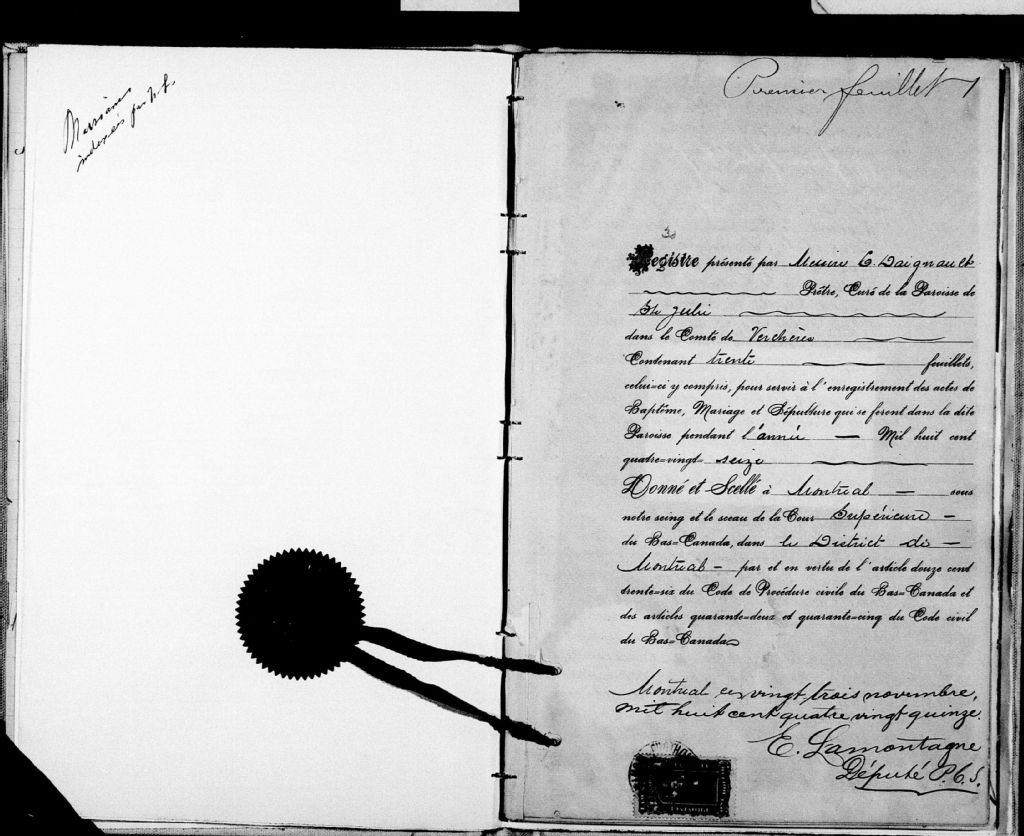 Premier feuillet 1
Registre présenté par Messire E. Daignault
Prêtre, Curé de la Paroisse de
Ste Julie
dans le Comté de Verchères
Contenant trente feuillets,
celui-ci y compris, pour servir à l'enregistrement des actes de
Baptême, Mariage et Sépulture qui se feront dans la dite
Paroisse pendant l'année — Mil huit cent
quatre=vingt= seize
Donné et Scellé à Montréal — sous
notre seing et le sceau de la Cour Supérieure —
du Bas=Canada, dans le District de —
Montréal — par et en vertu de l'article douze cent
trente=six du Code de Procédure civile du Bas=Canada et
des articles quarante=deux et quarante=cinq du Code civil
du Bas=Canada
Montréal ce vingt-trois novembre,
mil huit cent quatre vingt quinze.
E. Lamontagne
Député P.C.S.